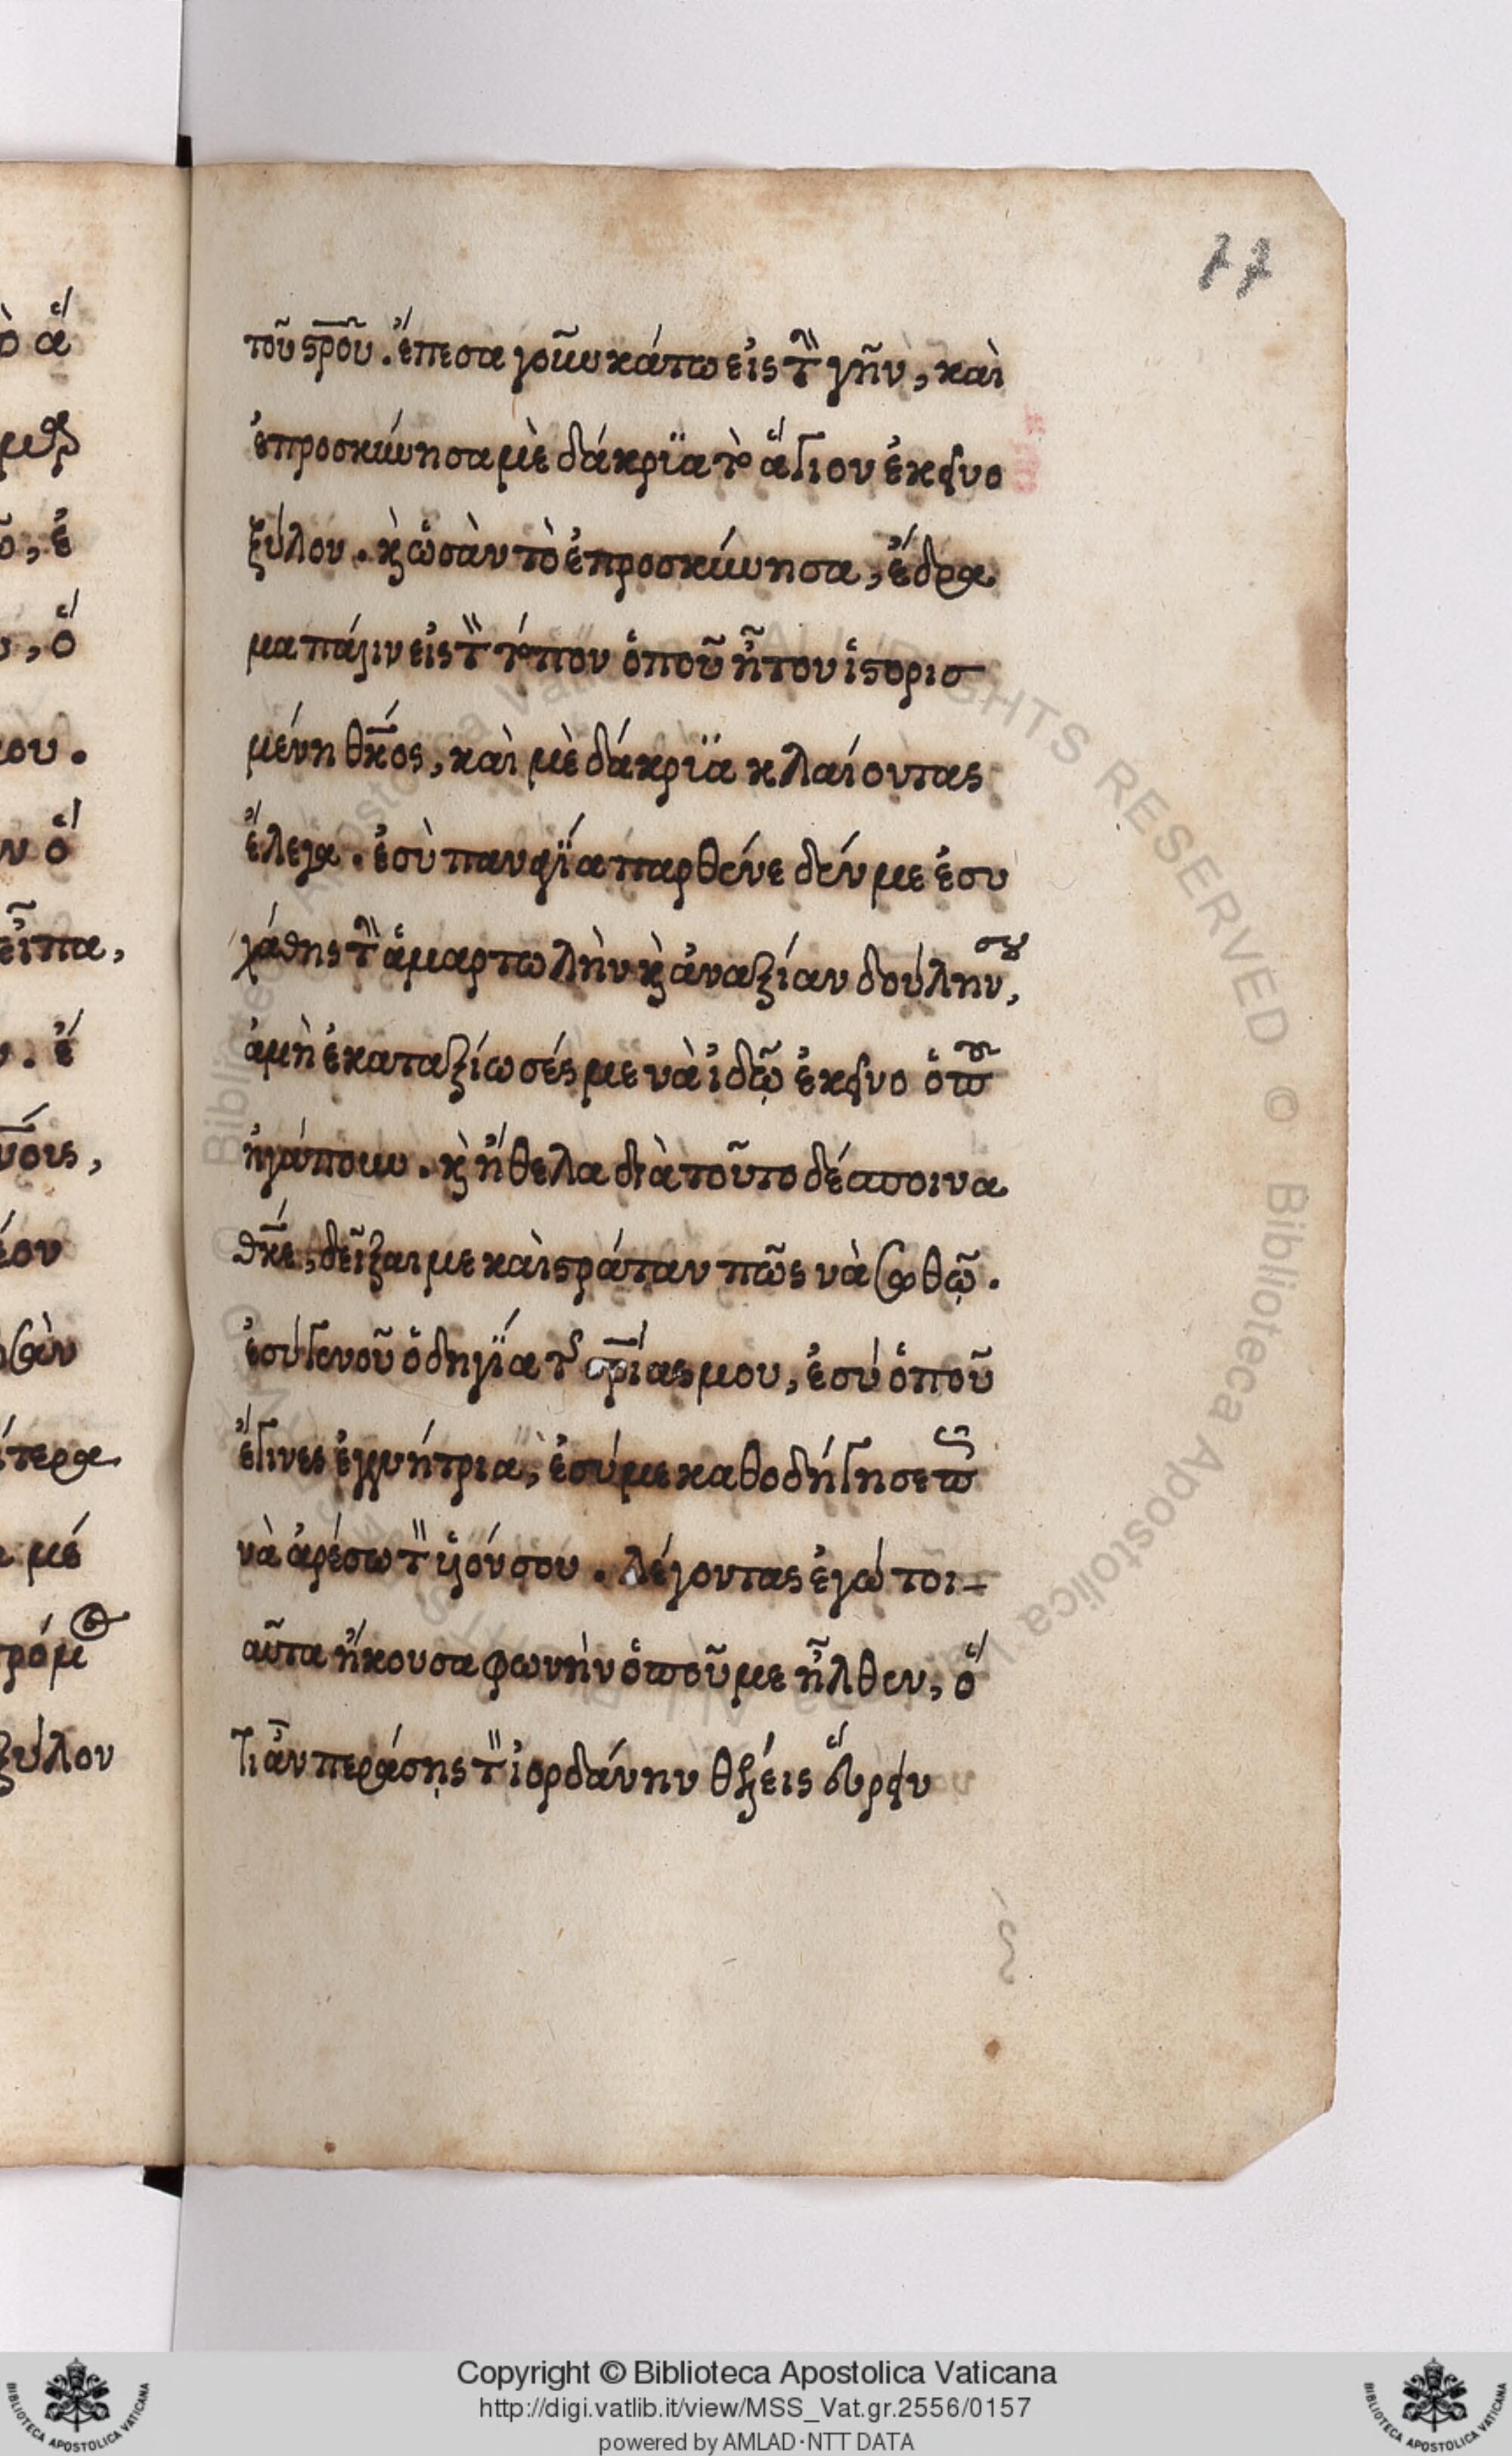 77
τοῦ στ̅ρ̅οῦ. ἔπεσα γοῦν κάτω εἰς τὴν γῆν, καὶ
ἐπροσκύνησα μὲ δάκρϊα τὸ ἅγιον ἐκεῖνο
ξύλον. κ̀ ὡσὰν τὸ ἐπροσκύνησα, ἔδρα
μα πάλιν εἰς τὸν τόπον ὁποῦ ἦτον ἱστορισ
μένη θκ̅όσ, καὶ μὲ δάκρϊα κλαίοντας
ἔλεγα. ἐσὺ παναγΐα παρθένε δέν με ἐσυ
χάθης τὴν ἁμαρτωλὴν κ̀ ἀναξίαν δούλην σου,
ἀμὴ ἐκαταξίωσές με νὰ ἰδῶ ἐκεῖνο ὁποῦ
ἠγάπουν. κ̀ ἤθελα διὰ τοῦτο δέσποινα
θκ̅ε, δεῖξαι με καὶ στράταν πῶς νὰ σωθῶ.
ἐσύ γενοῦ ὁδηγΐα τῆς σρ̅ίας μου, ἐσύ ὁποῦ
ἔγινες ἐγγυήτρια, ἐσύ με καθοδήγησε πῶς
νὰ ἀρέσω τὸν υἱόν σου. λέγοντας ἐγώ τοι-
αῦτα ἤκουσα φωνὴν ὁποῦ με ἦλθεν, ὅ
τι ἂν περάσῃς τὸν ἰορδάνην θέλεις εὕρειν
Copyright © Biblioteca Apostolica Vaticana
http://digi.vatlib.it/view/MSS_Vat.gr.2556/0157
powered by AMLAD·NTT DATA